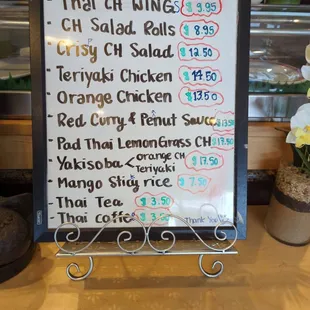 - Thai CH WINGS $ 9.95
- CH Salad Rolls $ 8.95
- Crisy CH Salad $ 12.50
- Teriyaki Chicken $ 14.50
- Orange Chicken $ 13.50
- Red Curry & Penut Sauce $ 13.50
- Pad Thai LemonGrass CH $ 17.50
- Yakisoba < orange CH $ 17.50
Teriyaki
- Mango Stiky rice $ 7.50
- Thai Tea $ 3.50
- Thai coffee $ 3.50
Thank You